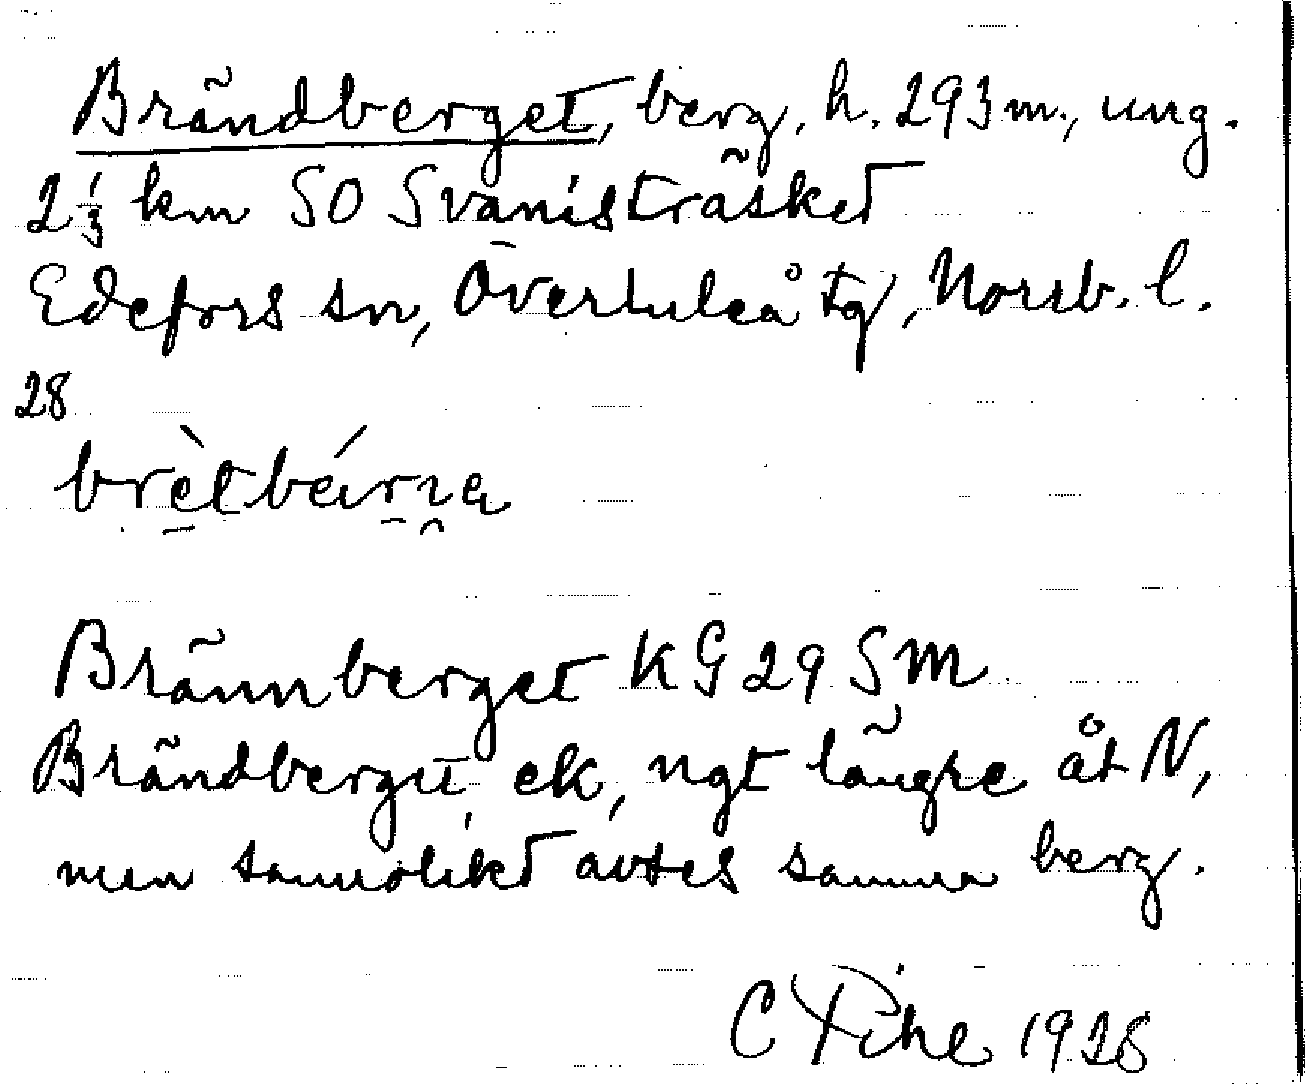 Brändberget, berg, h. 293 m., ung.
2 1/3 km SO Svanisträsket
Edefors sn, Överluleå tg, Norrb. l.
28
Brännberget KG 29 SM
Brändberget ek, ngt längre åt N,
men sannolikt avses samma berg.
C Pihl 1928